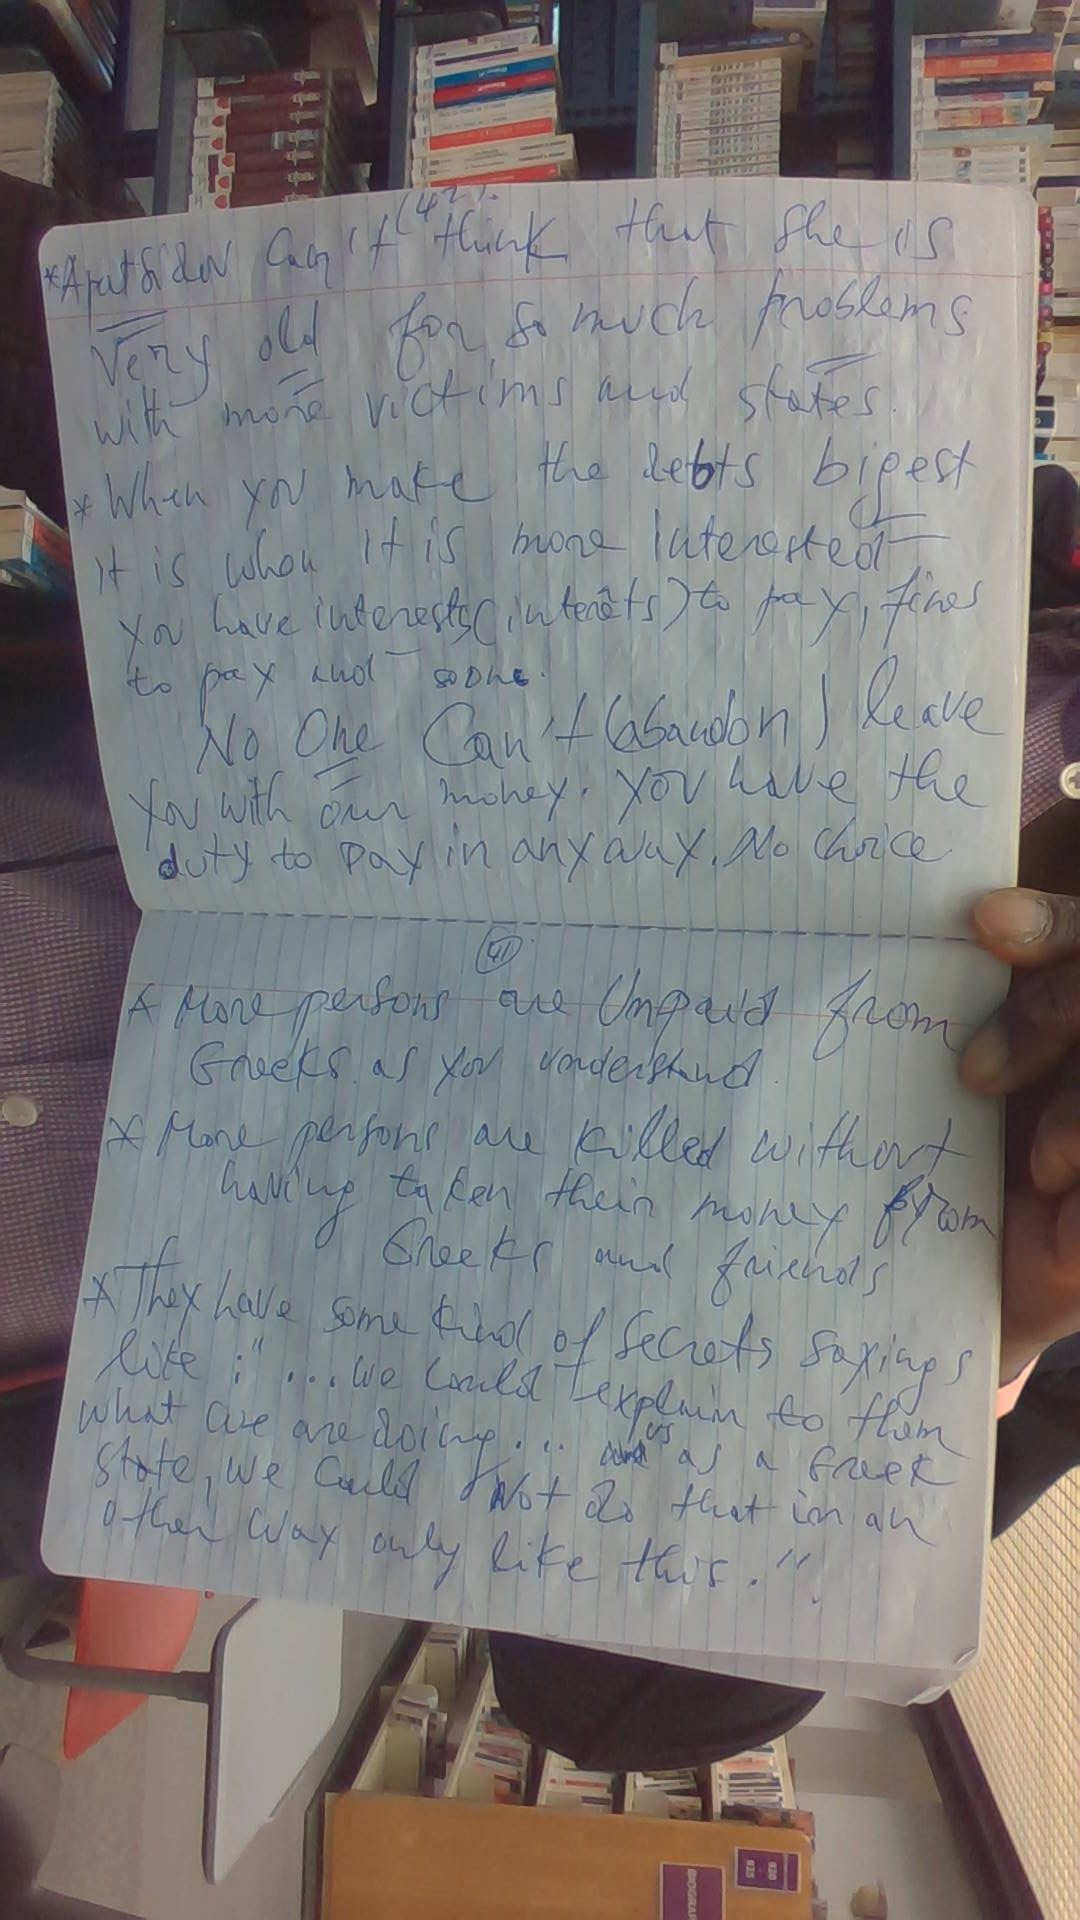 (42).
can't think that she is
Very old for so much problems
with more victims and states.
* When you make the debts bigest
it is when it is more interested
you have interests (interêts) to pay, fines
to pay and soone.
No One Can't (abandon) leave
you with our money. You have the
duty to pay in anyway. No choice
41
* More persons are Unpaid from
Greeks. as you understand.
* More persons are killed without
having taken their money from
Greeks and friends
* They have some kind of Secrets sayings
like : "... we could explain to them
what we are doing... us as a Greek
state, we could Not do that in an
other way only like this."
920
925